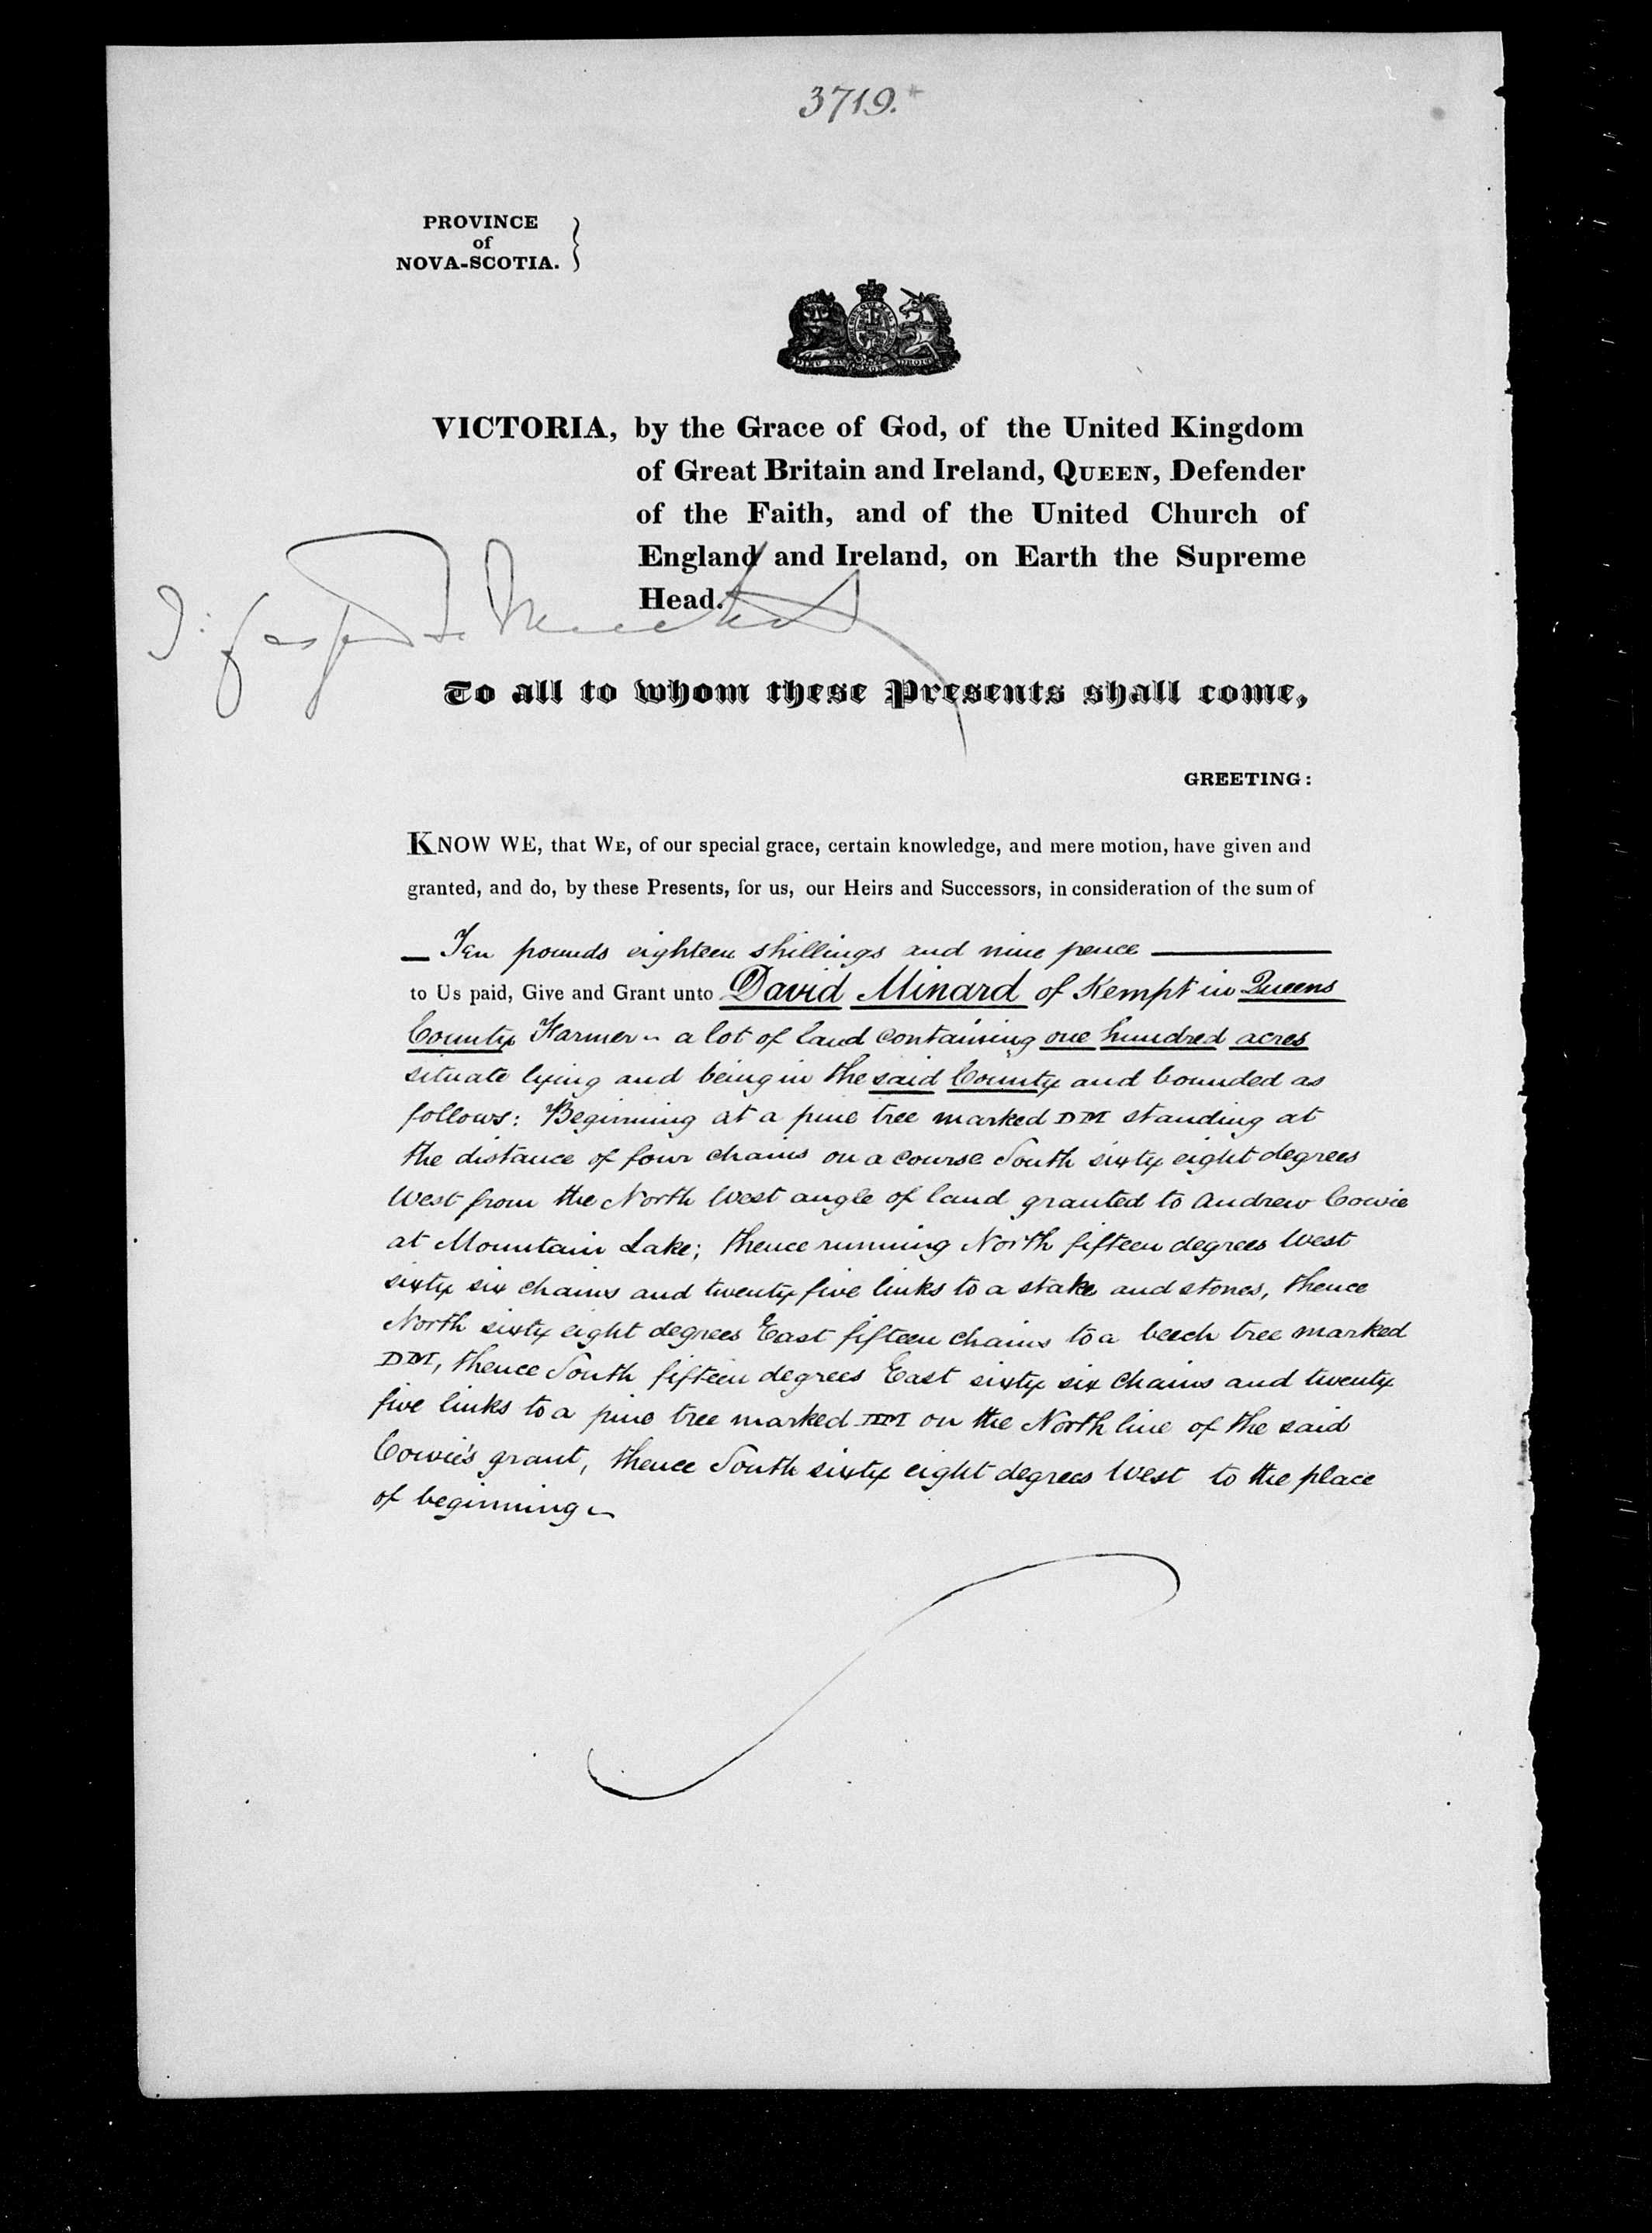 3719.
PROVINCE
of
NOVA-SCOTIA.
DIEU ET MON DROIT
VICTORIA, by the Grace of God, of the United Kingdom
of Great Britain and Ireland, QUEEN, Defender
of the Faith, and of the United Church of
England and Ireland, on Earth the Supreme
Head.
To all to whom these Presents shall come,
GREETING:
KNOW WE, that WE, of our special grace, certain knowledge, and mere motion, have given and
granted, and do, by these Presents, for us, our Heirs and Successors, in consideration of the sum of
Ten pounds eighteen shillings and nine pence
to Us paid, Give and Grant unto David Minard of Kempt in Queens
County Farmer - a lot of land containing one hundred acres
situate lying and being in the said County and bounded as
follows: Beginning at a pine tree marked DM standing at
the distance of four chains on a course South sixty eight degrees
West from the North West angle of land granted to Andrew Cowie
at Mountain Lake; thence running North fifteen degrees West
sixty six chains and twenty five links to a stake and stones, thence
North sixty eight degrees East fifteen chains to a beech tree marked
DM, thence South fifteen degrees East sixty six chains and twenty
five links to a pine tree marked DM on the North line of the said
Cowie's grant, thence South sixty eight degrees West to the place
of beginning -